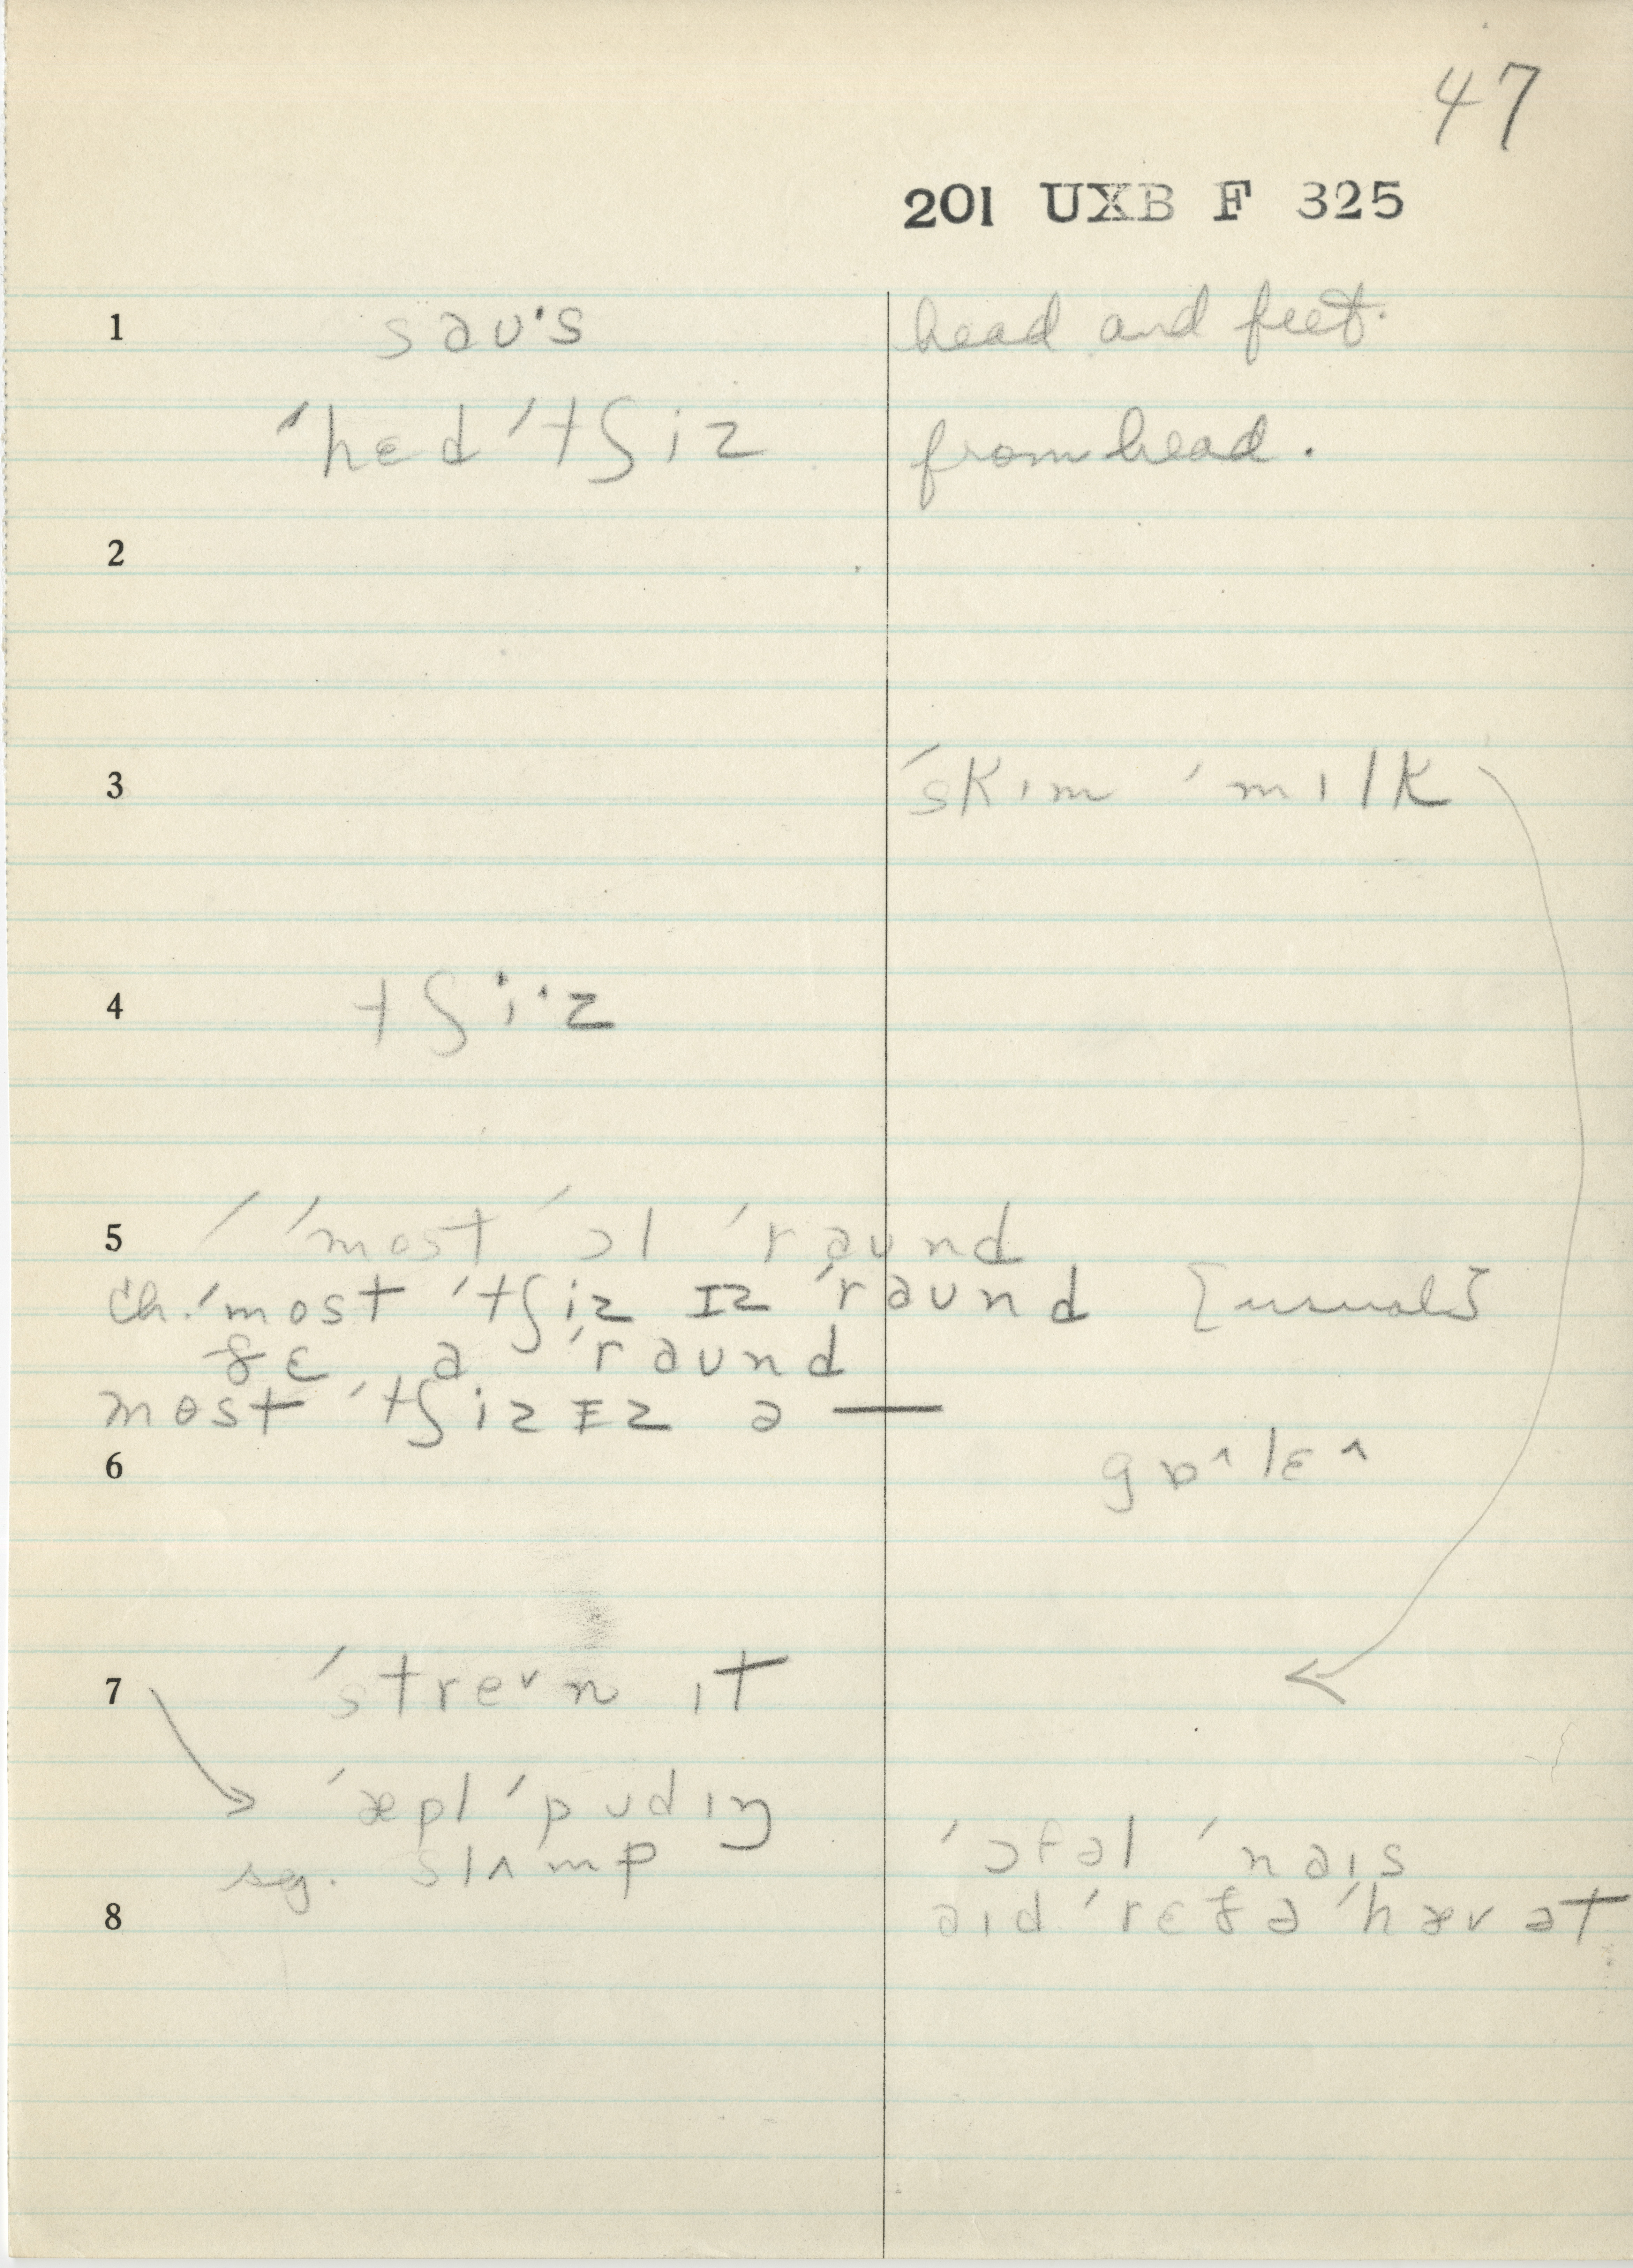 47
201 UXB F 325
1 saʊ's head and feet.
'hɛd 'tʃiz from head.
2
3 'skım 'mılk
4 tʃi·z
5 'most 'ɔl 'raund
ch. 'most 'tʃiz ɪz 'raund [usual]
ɚ ɛ a 'raund
most 'tʃiz ɪz ə —
6 gɒ^ lɛ^
7 'strevn ıt
'æpl 'pudıŋ
sg. slʌmp
'ɔfəl 'naıs
8 aıd 'rɛðə 'hæv ət